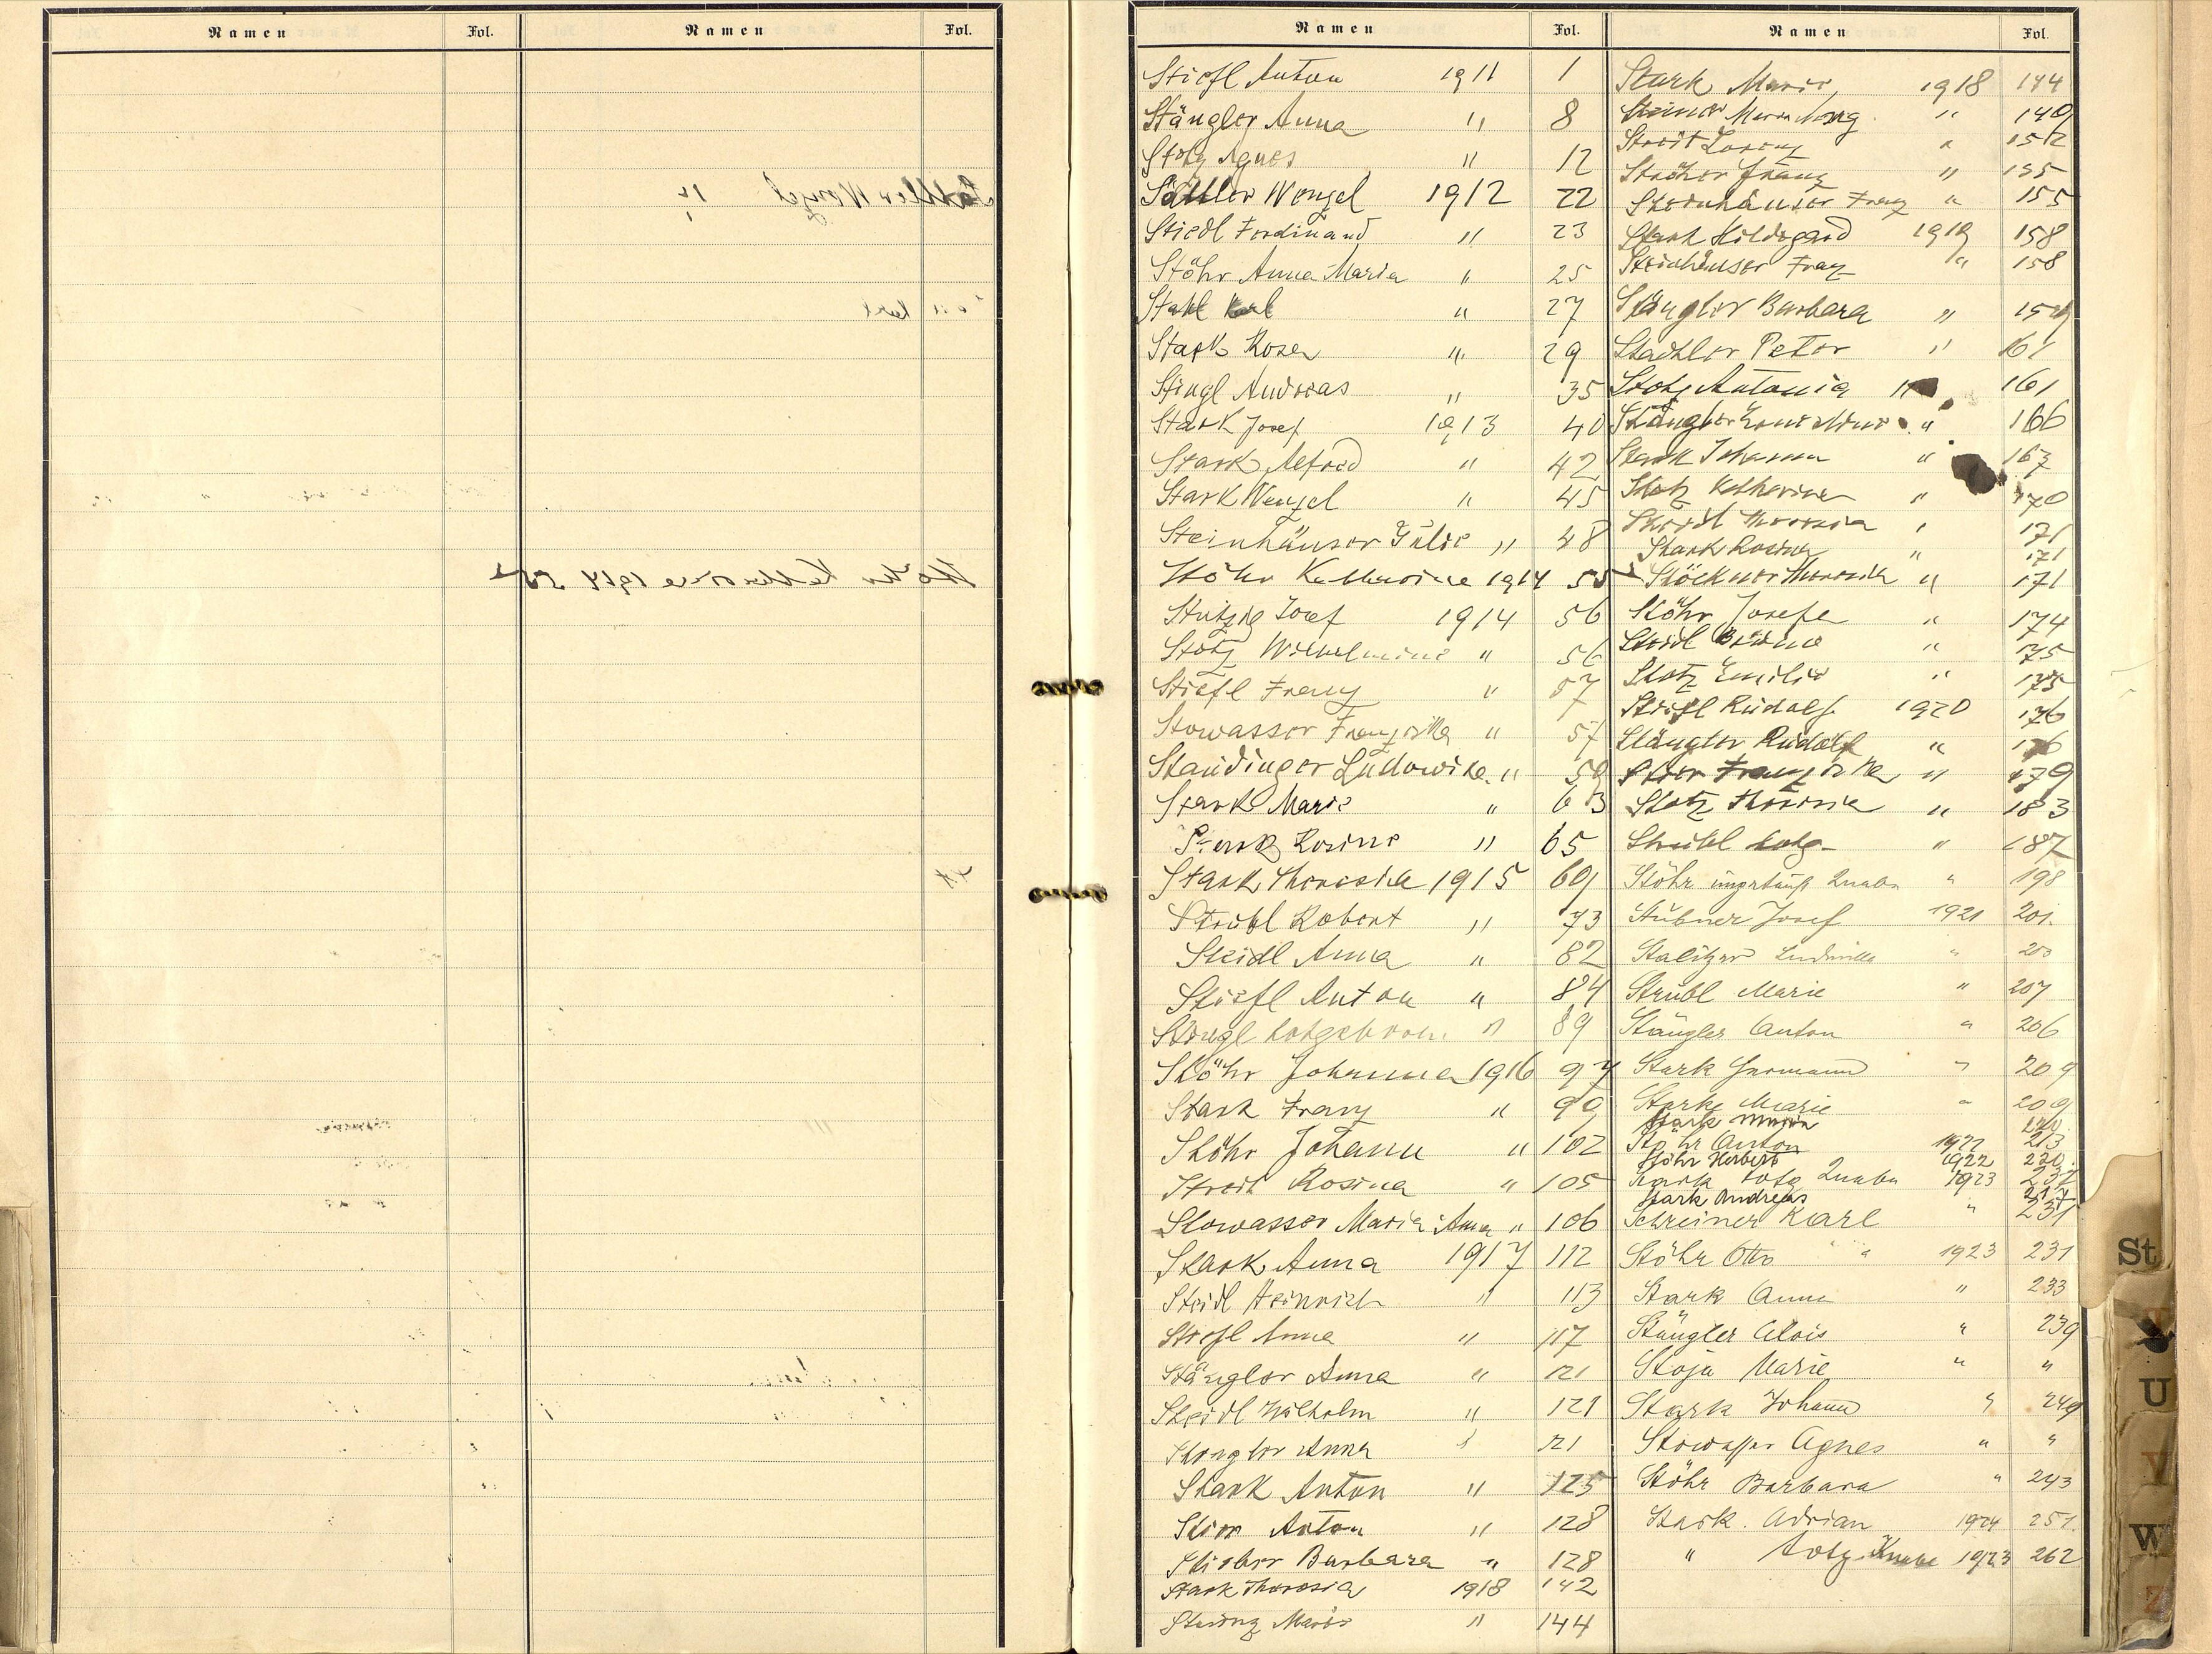 Namen Fol. Namen Fol.
Namen Fol. Namen Fol.
Stiefl Anton 1911 1
Stängler Anna " 8
Stotz Agnes " 12
Sattler Wenzel 1912 22
Stiedl Ferdinand " 23
Stöhr Anna Maria " 25
Stahl Karl " 27
Stark Rosa " 29
Stingl Andreas " 35
Stark Josef 1913 40
Stark Alfred " 42
Stark Wenzel " 45
Steinhäuser Julie " 48
Stöhr Katharina 1914 55
Stutzig Josef 1914 56
Stotz Wilhelmine " 56
Stiefl Franz " 57
Stowasser Franziska " 57
Staudinger Ludowika " 59
Stark Marie " 63
Stark Rosina " 65
Stark Theresia 1915 69
Strübl Robert " 73
Steidl Anna " 82
Stiefl Anton " 84
Stingl totgeboren " 89
Stöhr Johanna 1916 97
Stark Franz " 99
Stöhr Johann " 102
Streit Rosina " 105
Stowasser Maria Anna " 106
Stark Anna 1917 112
Steidl Heinrich " 113
Stiefl Anna " 117
Stängler Anna " 121
Steidl Wilhelm " 121
Stengler Anna " 121
Stark Anton " 125
Stier Anton " 128
Stieber Barbara " 128
Stark Theresia 1918 142
Marie " 144
Stark Marie 1918 144
Steiner " 149
Streit Lorenz " 152
Stöhr Franz " 155
Steinhäuser Franz " 155
Stark Hildegard 1919 158
Steinhäuser Franz " 158
Stängler Barbara " 159
Stadtler Peter " 161
Stotz Antonia " 161
Stängler " 166
Stark Johanna " 167
Stotz Katharina " 170
Steidl Theresia " 171
Stark Rosina " 171
Stöckner Theresia " 171
Stöhr Josefa " 174
Steidl " 175
Stotz Emilie " 175
Stiefl Rudolf 1920 176
Stängler Rudolf " 176
Stier Franziska " 179
Stotz Theresia " 183
Strübl totg. " 187
Stöhr ungetauft Knabe " 198
Stübner Josef 1921 201.
Stalitzer Ludmilla " 203
Strübl Marie " 207
Stängler Anton " 206
Stark Hermann " 209
Starke Marie " 209
Stark Maria
Stöhr Anton 1922 213
Stöhr Herbert 1922 220.
Stark totg. Knabe 1923 237
Stark Andreas
Schreiner Karl " 231
Stöhr Otto " " 1923 231
Stark Anna " 233
Stängler Alois " 239
Stoja Marie " "
Stark Johann " 249
Stowasser Agnes " "
Stöhr Barbara " 243
Stark. Adrian 1924 251.
" totg. Knabe 1923 262
St
U
V
W
Z